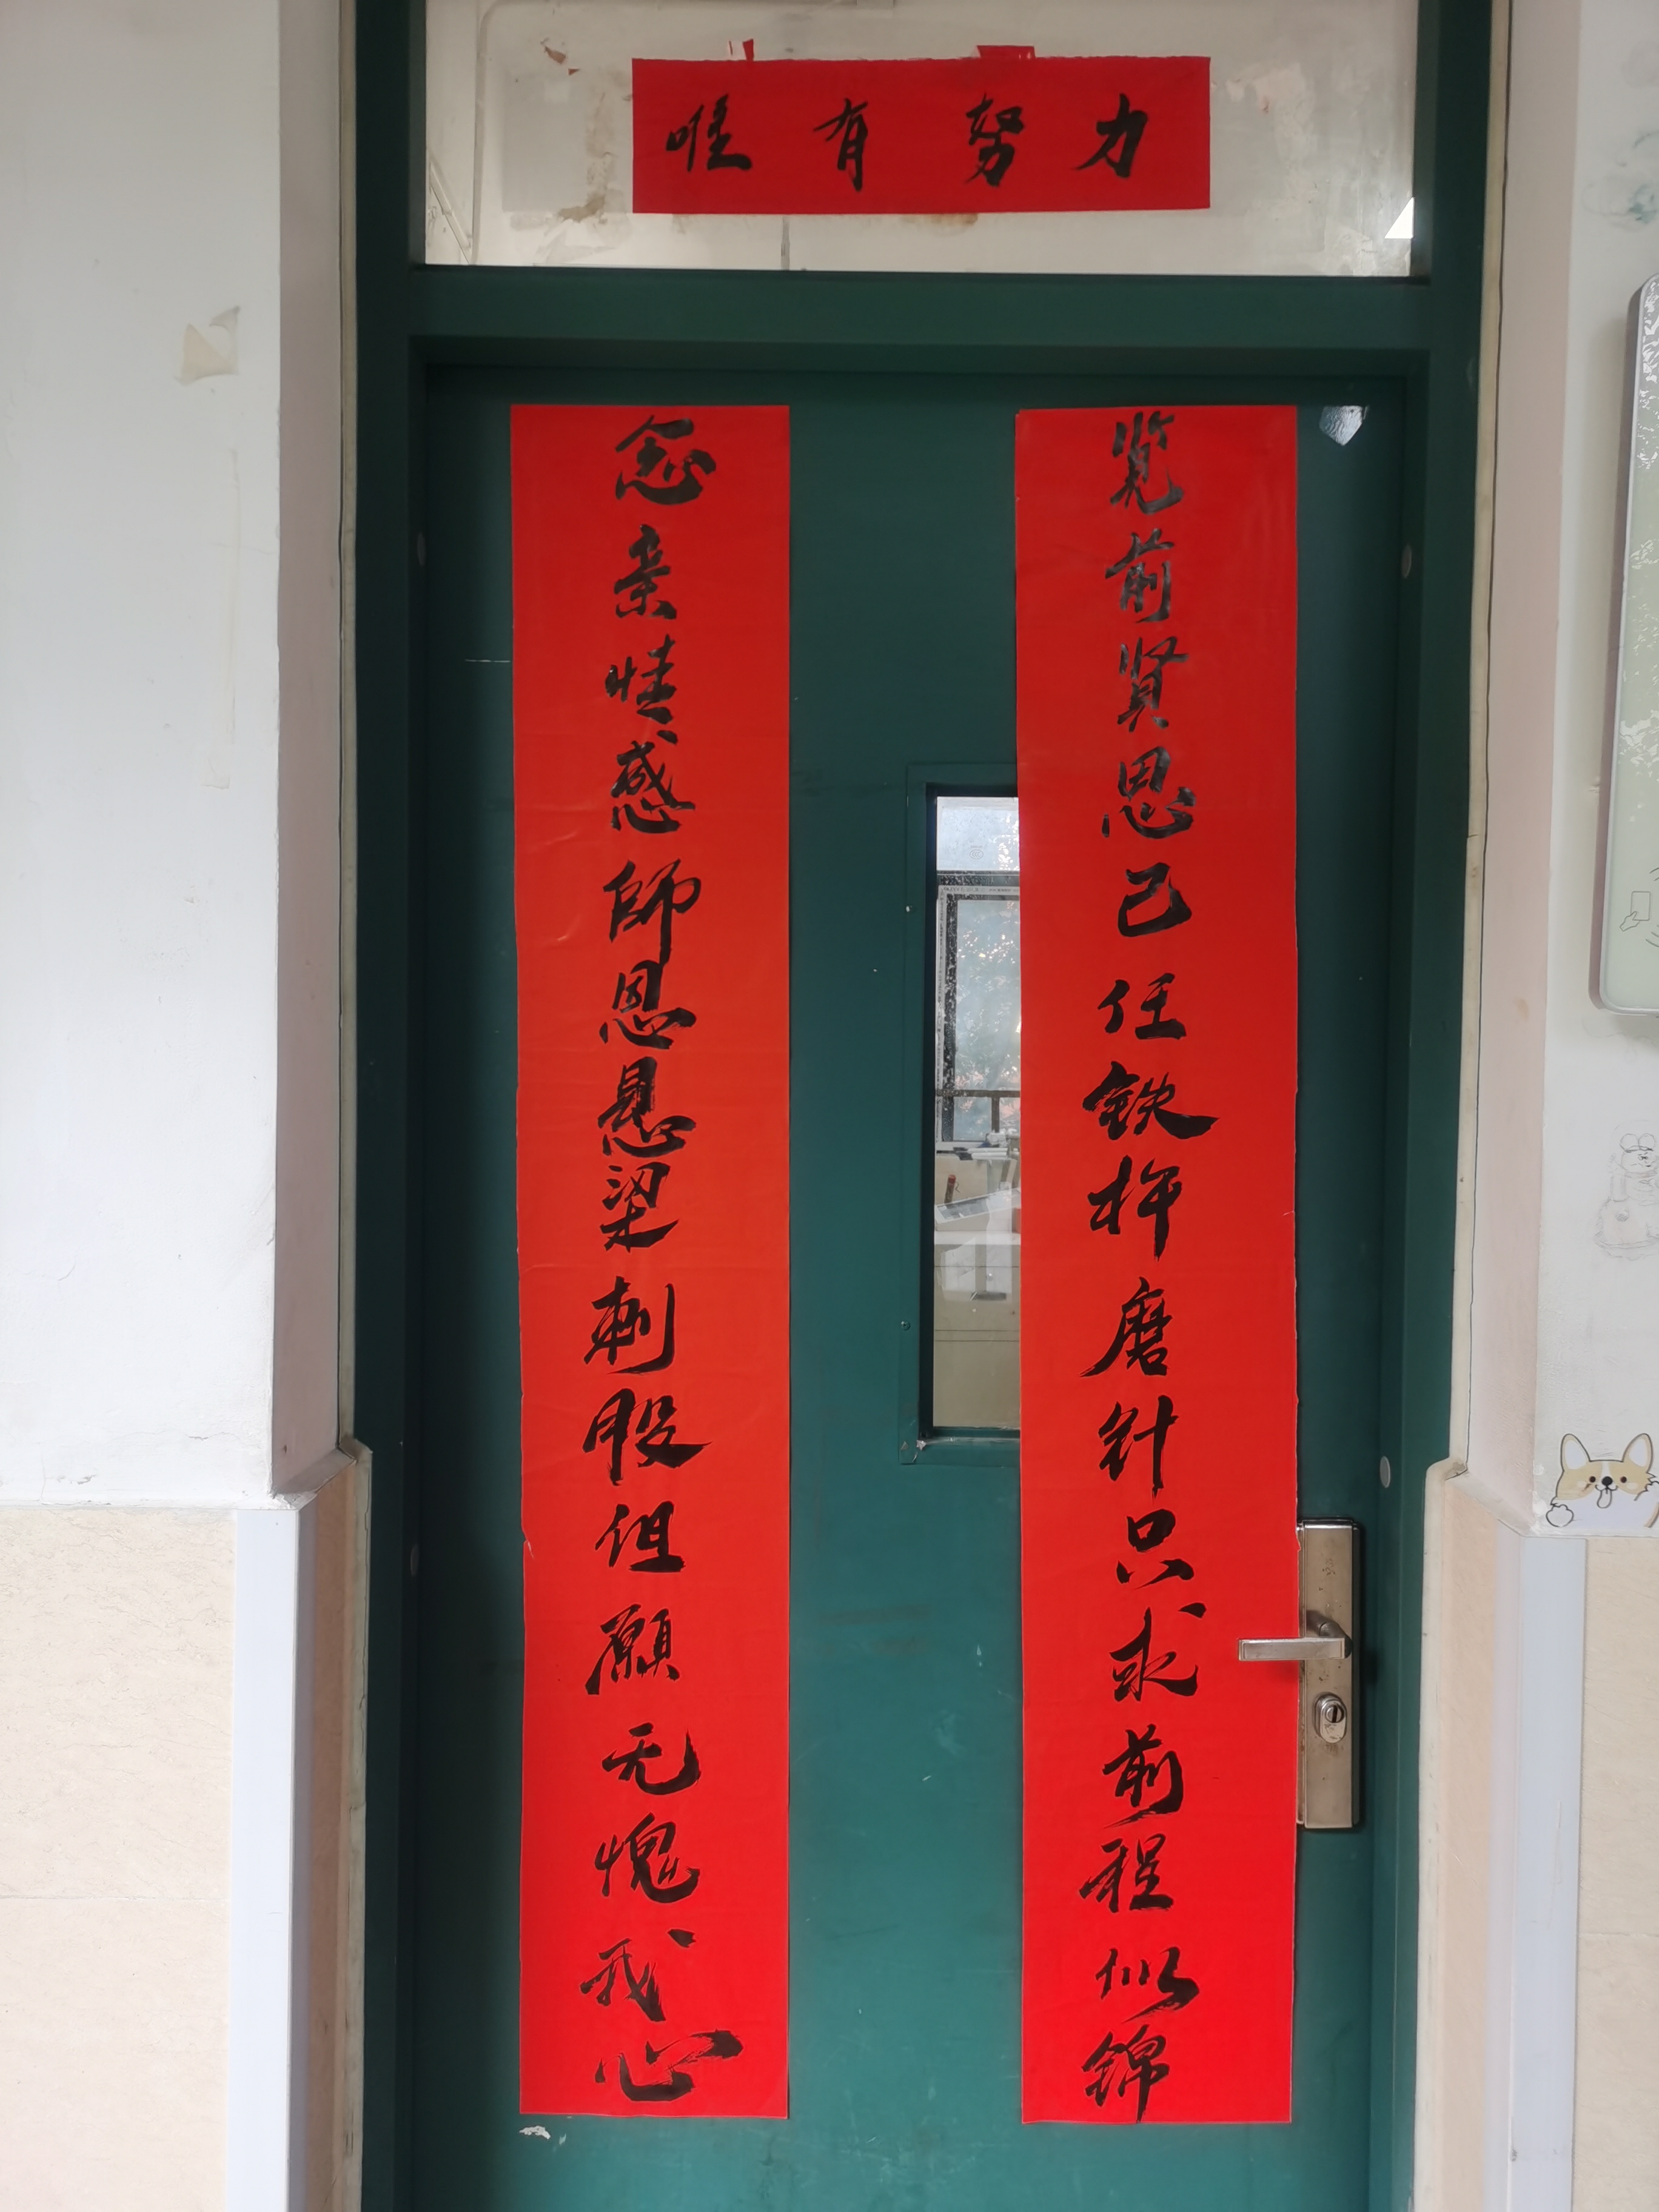 唯有努力
览前贤思己任铁杵磨针只求前程似锦
念亲情感師恩悬梁刺股但願无愧我心